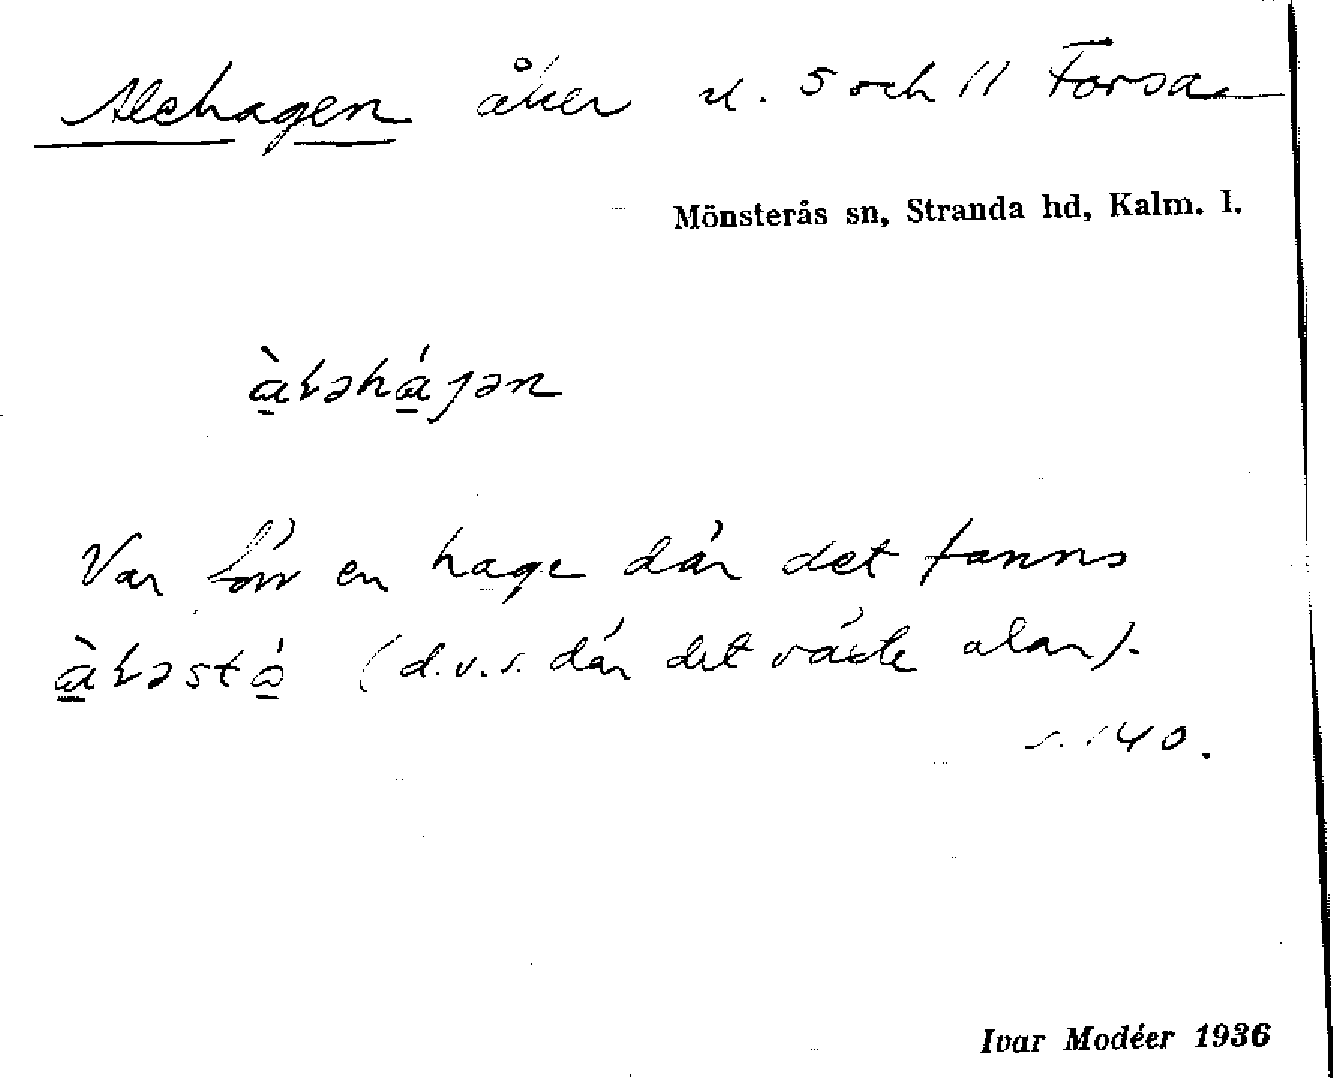 Alehagen åker å. 5 och 11 Forsa
Mönsterås sn, Stranda hd, Kalm. l.
Var förr en hage där det fanns
(d.v.s. där det växte alar).
s. 140.
Ivar Modéer 1936